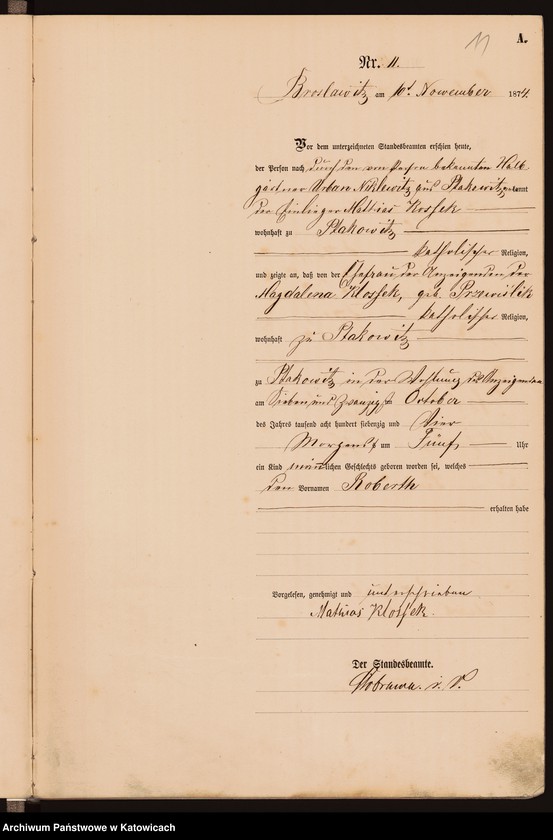 11
A.
Nr. 11.
Broslawitz am 10t November 1874.
Vor dem unterzeichneten Standesbeamten erschien heute,
der Person nach durch den von Person bekannten Halb
gärtner Urban Niklewitz aus Ptakowitz, erkannt
der Einlieger Mathias Klossek
wohnhaft zu Ptakowitz
katholischer Religion,
und zeigte an, daß von der Ehefrau des Anzeigenden der
Magdalena Klossek, geb. Przewislik
katholischer Religion,
wohnhaft zu Ptakowitz
zu Ptakowitz in der Wohnung des Anzeigenden
am Sieben und Zwanzigst October
des Jahres tausend acht hundert siebenzig und Vier
Morgens um Fünf Uhr
ein Kind männlichen Geschlechts geboren worden sei, welches
den Vornamen Roberth
erhalten habe
Vorgelesen, genehmigt und unterschrieben
Mathias Klossek.
Der Standesbeamte.
i. V.
Archiwum Państwowe w Katowicach